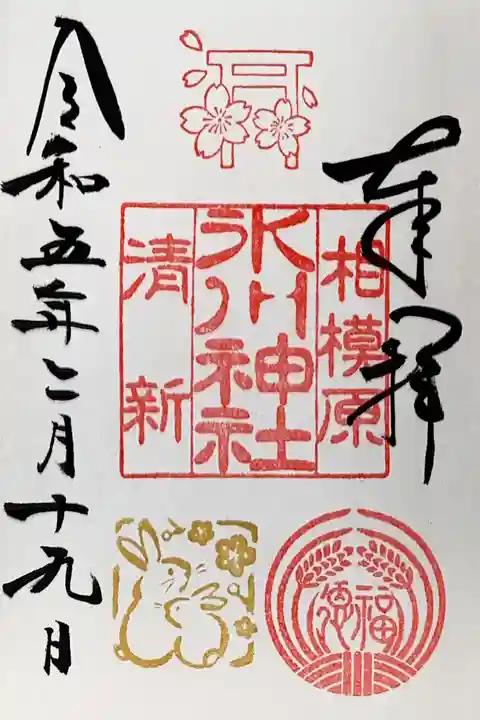 奉拝
相模原
氷川神社
清新
福徳
令和五年二月十九日